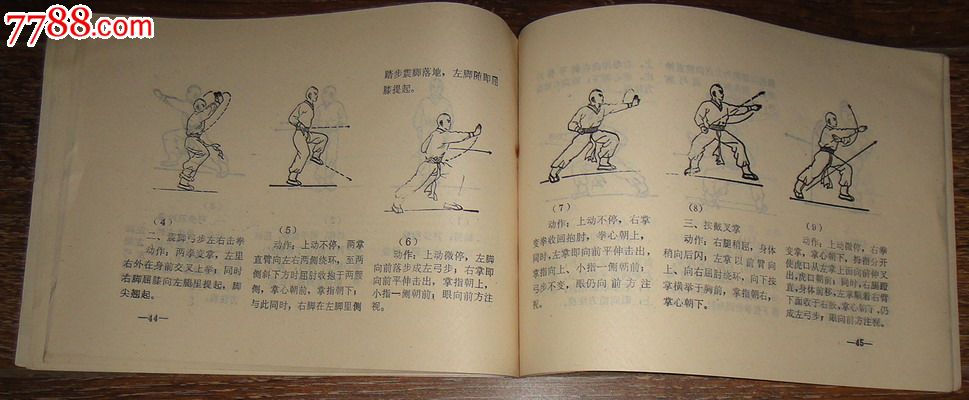 7788.com
(4)
二、震脚弓步左右击拳
动作：两拳变掌，左里
右外在身前交叉上举；同时
右脚屈膝向左腿里提起，脚
尖翘起。
(5)
动作：上动不停，两掌
直臂向左右两侧绕环，至两
侧斜下方时屈肘收抱于两腰
侧，掌心朝前，掌指朝下；
与此同时，右脚在左脚里侧
踏步震脚落地，左脚随即屈
膝提起。
(6)
动作：上动微停，左脚
向前落步成左弓步；右掌即
向前平伸击出，掌指朝上，
小指一侧朝前；眼向前方注
视。
—44—
(7)
动作：上动不停，右掌
变拳收回抱肘，拳心朝上，
同时，左掌即向前平伸击出，
掌指向上、小指一侧朝前；
弓步不变，眼仍向前方注
视。
(8)
三、按截叉掌
动作：右腿稍屈，身体
稍向后闪；左掌以前臂向
上、向右屈肘绕环，向下按
掌横举于胸前，掌指朝右，
掌心朝下。
(9)
动作：上动微停，右拳
变掌，掌心朝下，拇指分开
使虎口从左掌上面向前伸叉
出，虎口朝前；同时，右腿蹬
直，身体前移，左掌顺着右臂
下面收于右腋，掌心朝下，仍
成左弓步；眼向前方注视。
—45—